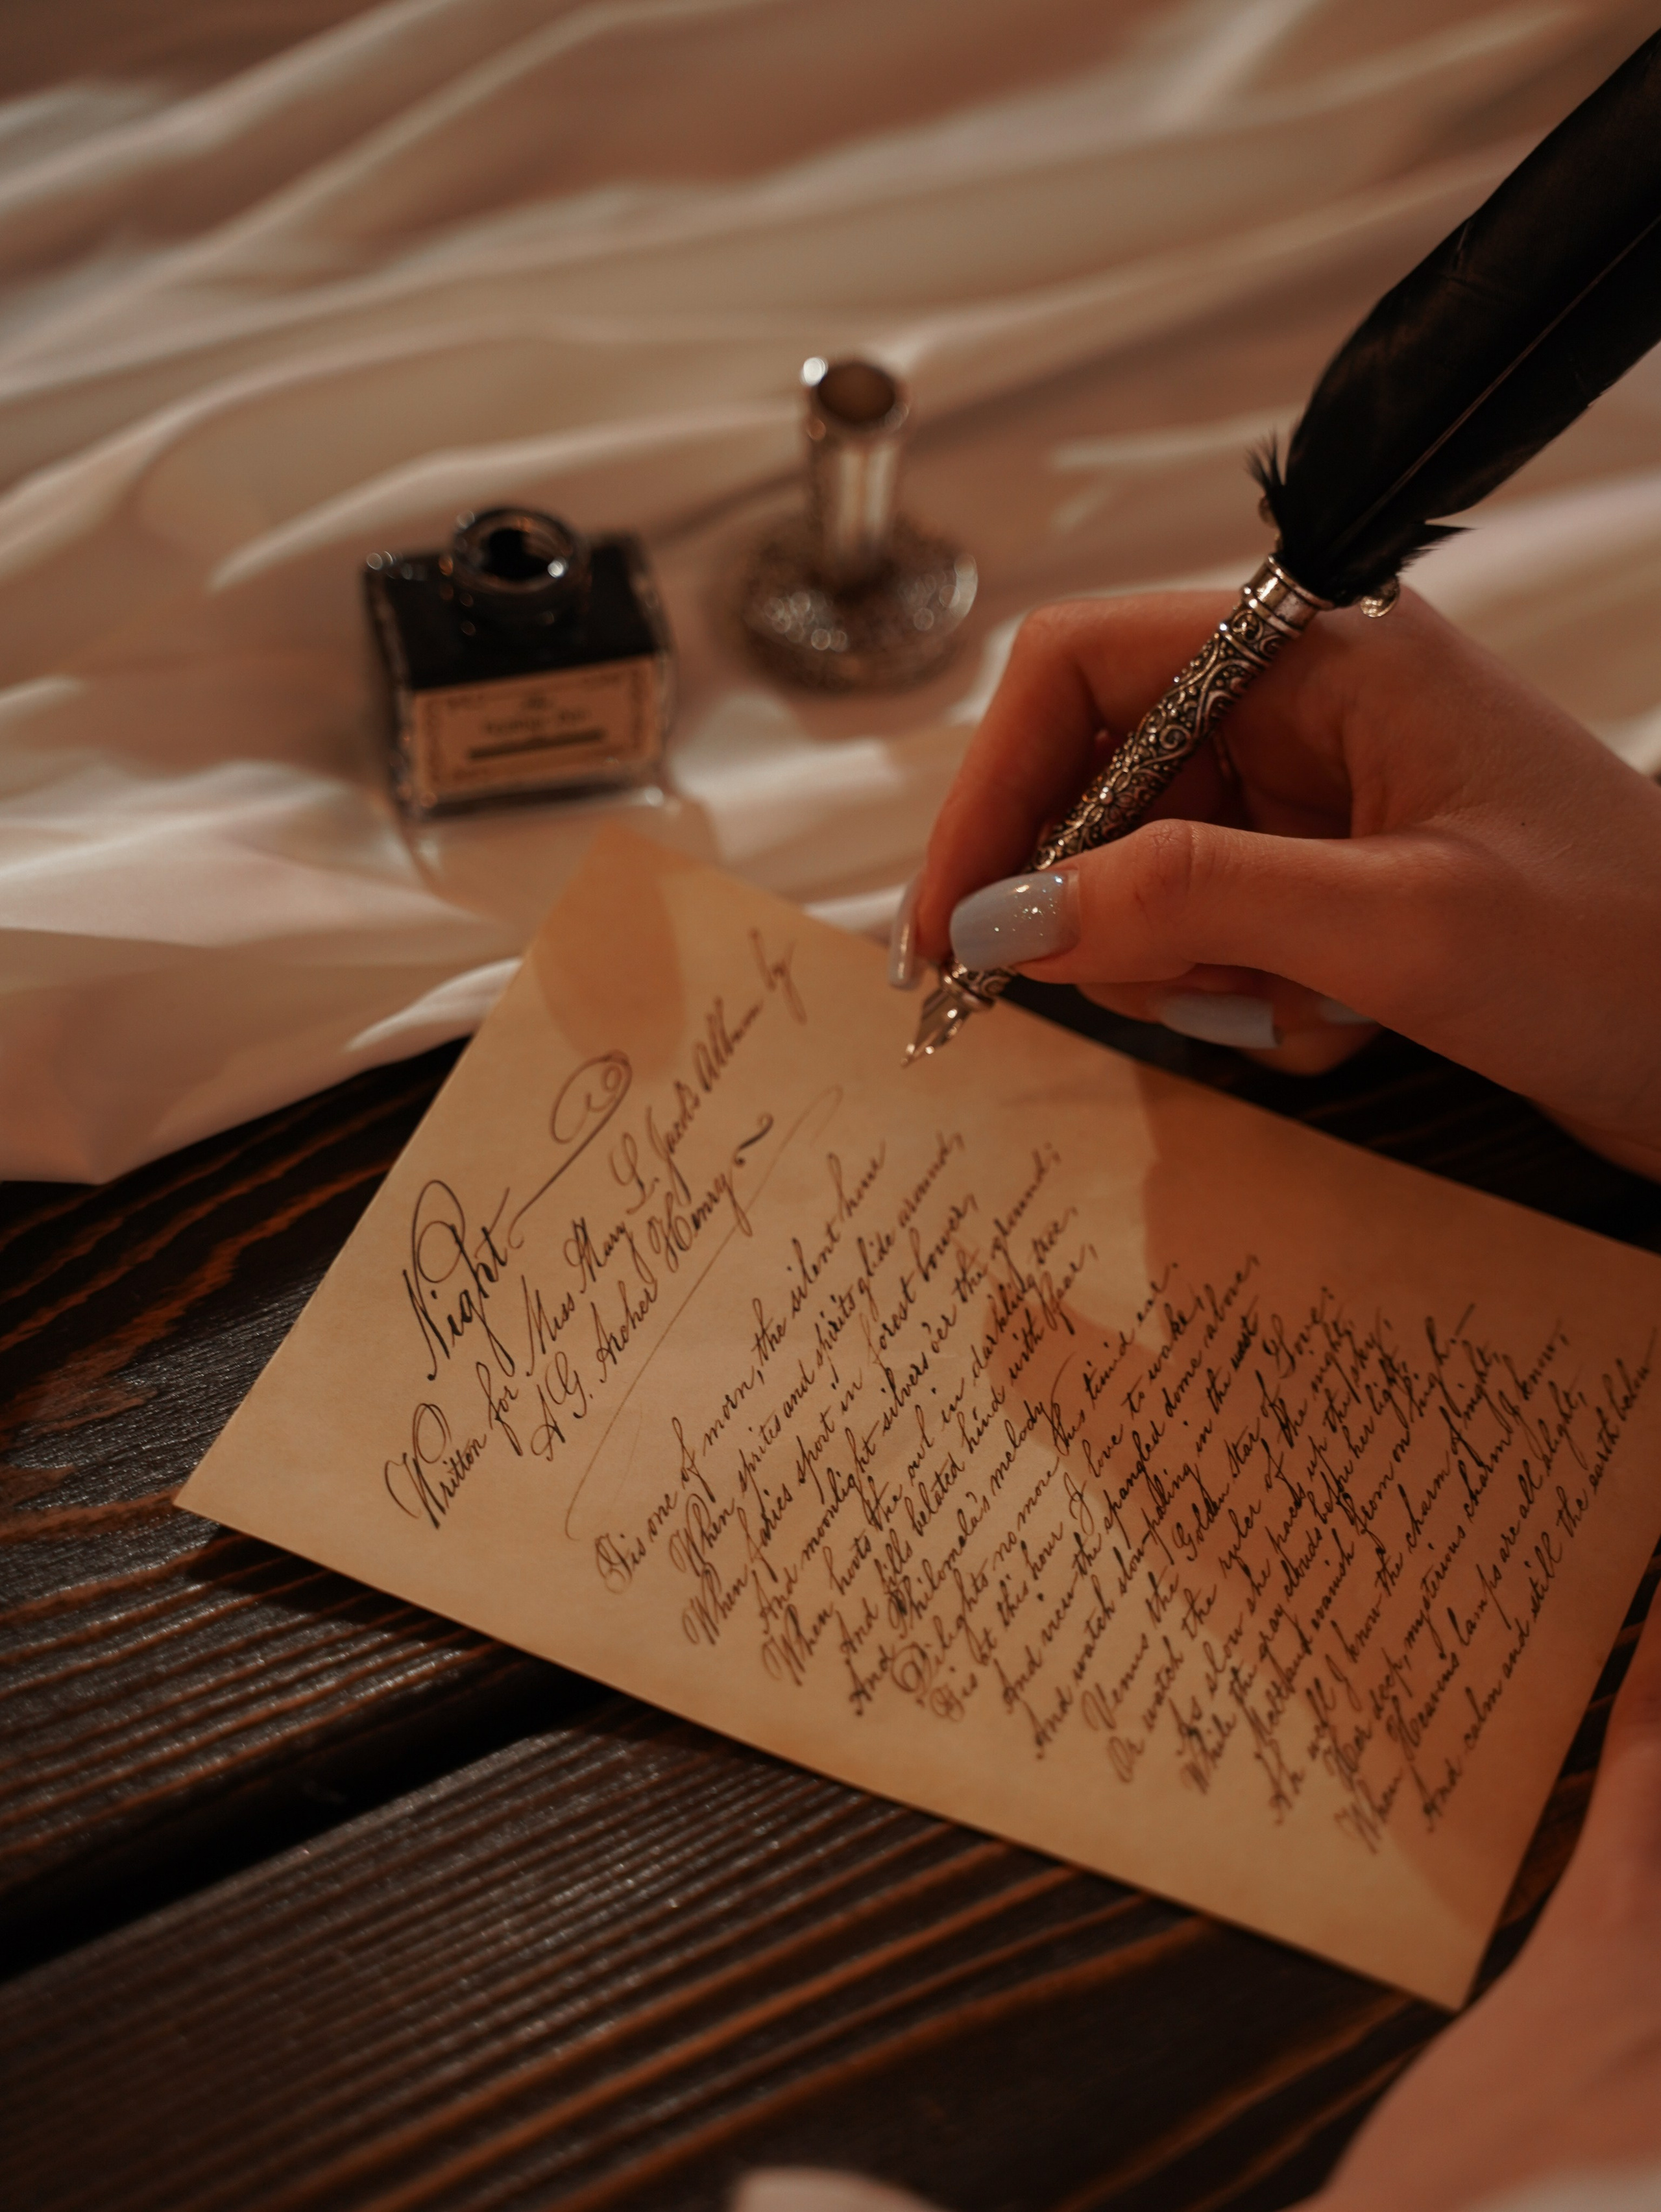 Night
Written for Miss Mary L. Jack's Album by
A.G. Archer Henry
Tis one of morn, the silent hour
When sprites and spirits glide around,
When fairies sport in forest bower,
And moonlight silvers o'er the ground;
When hoots the owl in darkling tree,
And fills belated hind with fear,
And Philomela's melody
Delights no more this timid ear.
Tis at this hour I love to wake,
And view the spangled dome above,
And watch slow-paling in the west
Venus the Golden star of Love;
Or watch the ruler of the night,
As slow she paces up the sky;
While the gray clouds before her light,
Melt and vanish from on high.—
Ah well I know the charm of night,
Her deep, mysterious charm I know,
When Heavens lamps are all alight,
And calm and still the earth below